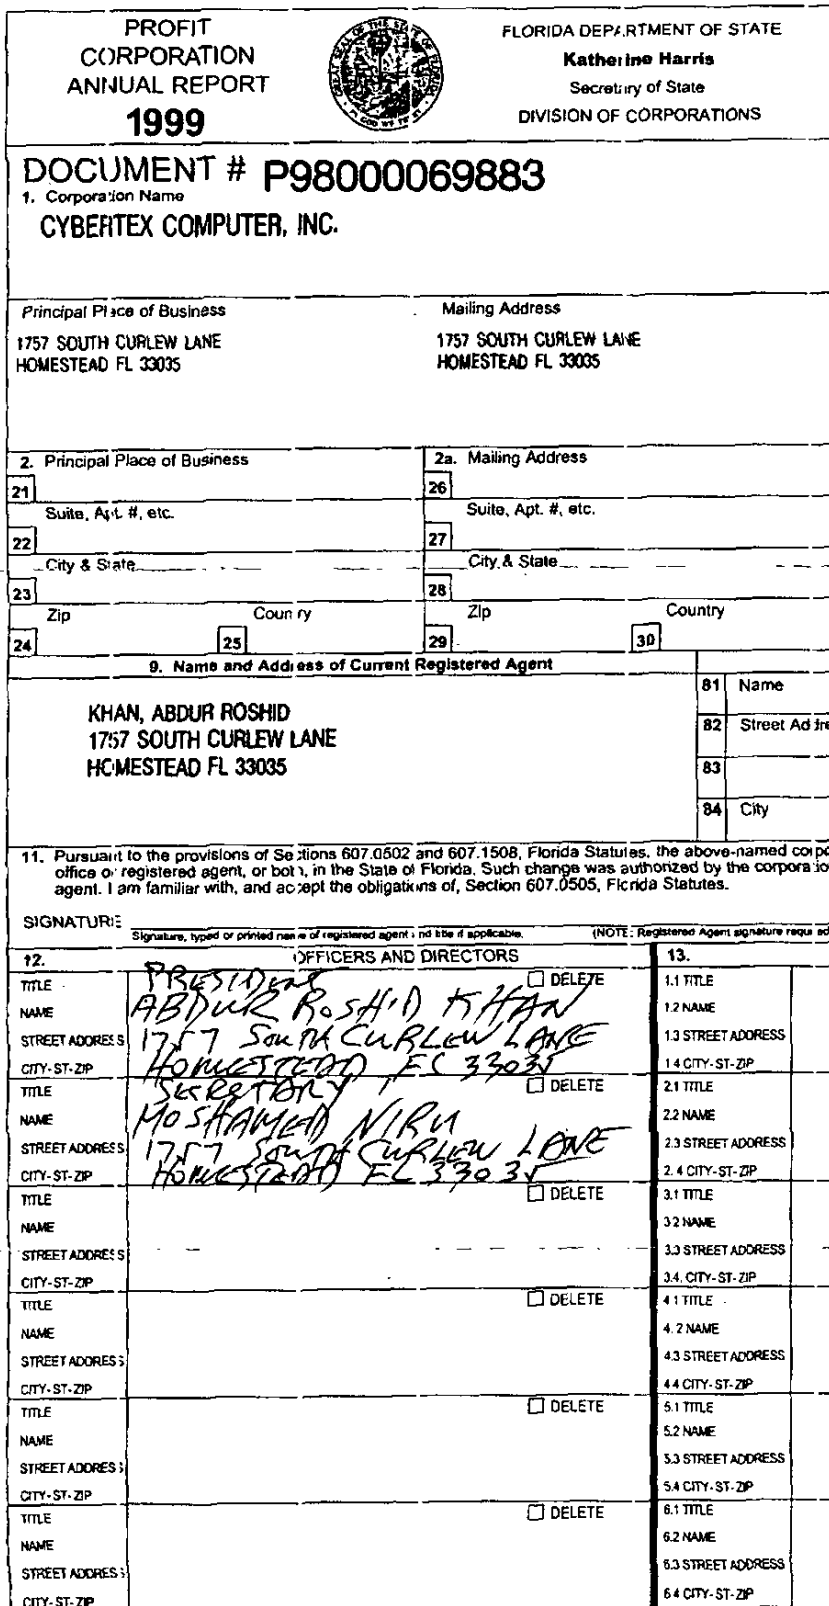 PROFIT
CORPORATION
ANNUAL REPORT
1999
GREAT SEAL OF THE STATE OF FLORIDA
IN GOD WE TRUST
FLORIDA DEPARTMENT OF STATE
Katherine Harris
Secretary of State
DIVISION OF CORPORATIONS
DOCUMENT # P98000069883
1. Corporation Name
CYBERTEX COMPUTER, INC.
Principal Place of Business
Mailing Address
1757 SOUTH CURLEW LANE
HOMESTEAD FL 33035
1757 SOUTH CURLEW LANE
HOMESTEAD FL 33035
2. Principal Place of Business
2a. Mailing Address
21
26
Suite, Apt. #, etc.
Suite, Apt. #, etc.
22
27
City & State
City & State
23
28
Zip
Country
Zip
Country
24
25
29
30
9. Name and Address of Current Registered Agent
81 Name
KHAN, ABDUR ROSHID
1757 SOUTH CURLEW LANE
HOMESTEAD FL 33035
82 Street Addre
83
84 City
11. Pursuant to the provisions of Sections 607.0502 and 607.1508, Florida Statutes, the above-named corpo
office or registered agent, or both, in the State of Florida. Such change was authorized by the corporatio
agent. I am familiar with, and accept the obligations of, Section 607.0505, Florida Statutes.
SIGNATURE
Signature, typed or printed name of registered agent and title if applicable.
(NOTE: Registered Agent signature required
12. OFFICERS AND DIRECTORS
13.
TITLE PRESIDENT DELETE
NAME ABDUR ROSHID KHAN
STREET ADDRESS 1757 SOUTH CURLEW LANE
CITY-ST-ZIP HOMESTEAD, FL 33035
1.1 TITLE
1.2 NAME
1.3 STREET ADDRESS
1.4 CITY-ST-ZIP
TITLE SECRETARY DELETE
NAME MOSHAMED NIRU
STREET ADDRESS 1757 SOUTH CURLEW LANE
CITY-ST-ZIP HOMESTEAD FL 33035
2.1 TITLE
2.2 NAME
2.3 STREET ADDRESS
2.4 CITY-ST-ZIP
TITLE DELETE
NAME
STREET ADDRESS
CITY-ST-ZIP
3.1 TITLE
3.2 NAME
3.3 STREET ADDRESS
3.4. CITY-ST-ZIP
TITLE DELETE
NAME
STREET ADDRESS
CITY-ST-ZIP
4.1 TITLE
4.2 NAME
4.3 STREET ADDRESS
4.4 CITY-ST-ZIP
TITLE DELETE
NAME
STREET ADDRESS
CITY-ST-ZIP
5.1 TITLE
5.2 NAME
5.3 STREET ADDRESS
5.4 CITY-ST-ZIP
TITLE DELETE
NAME
STREET ADDRESS
CITY-ST-ZIP
6.1 TITLE
6.2 NAME
6.3 STREET ADDRESS
6.4 CITY-ST-ZIP